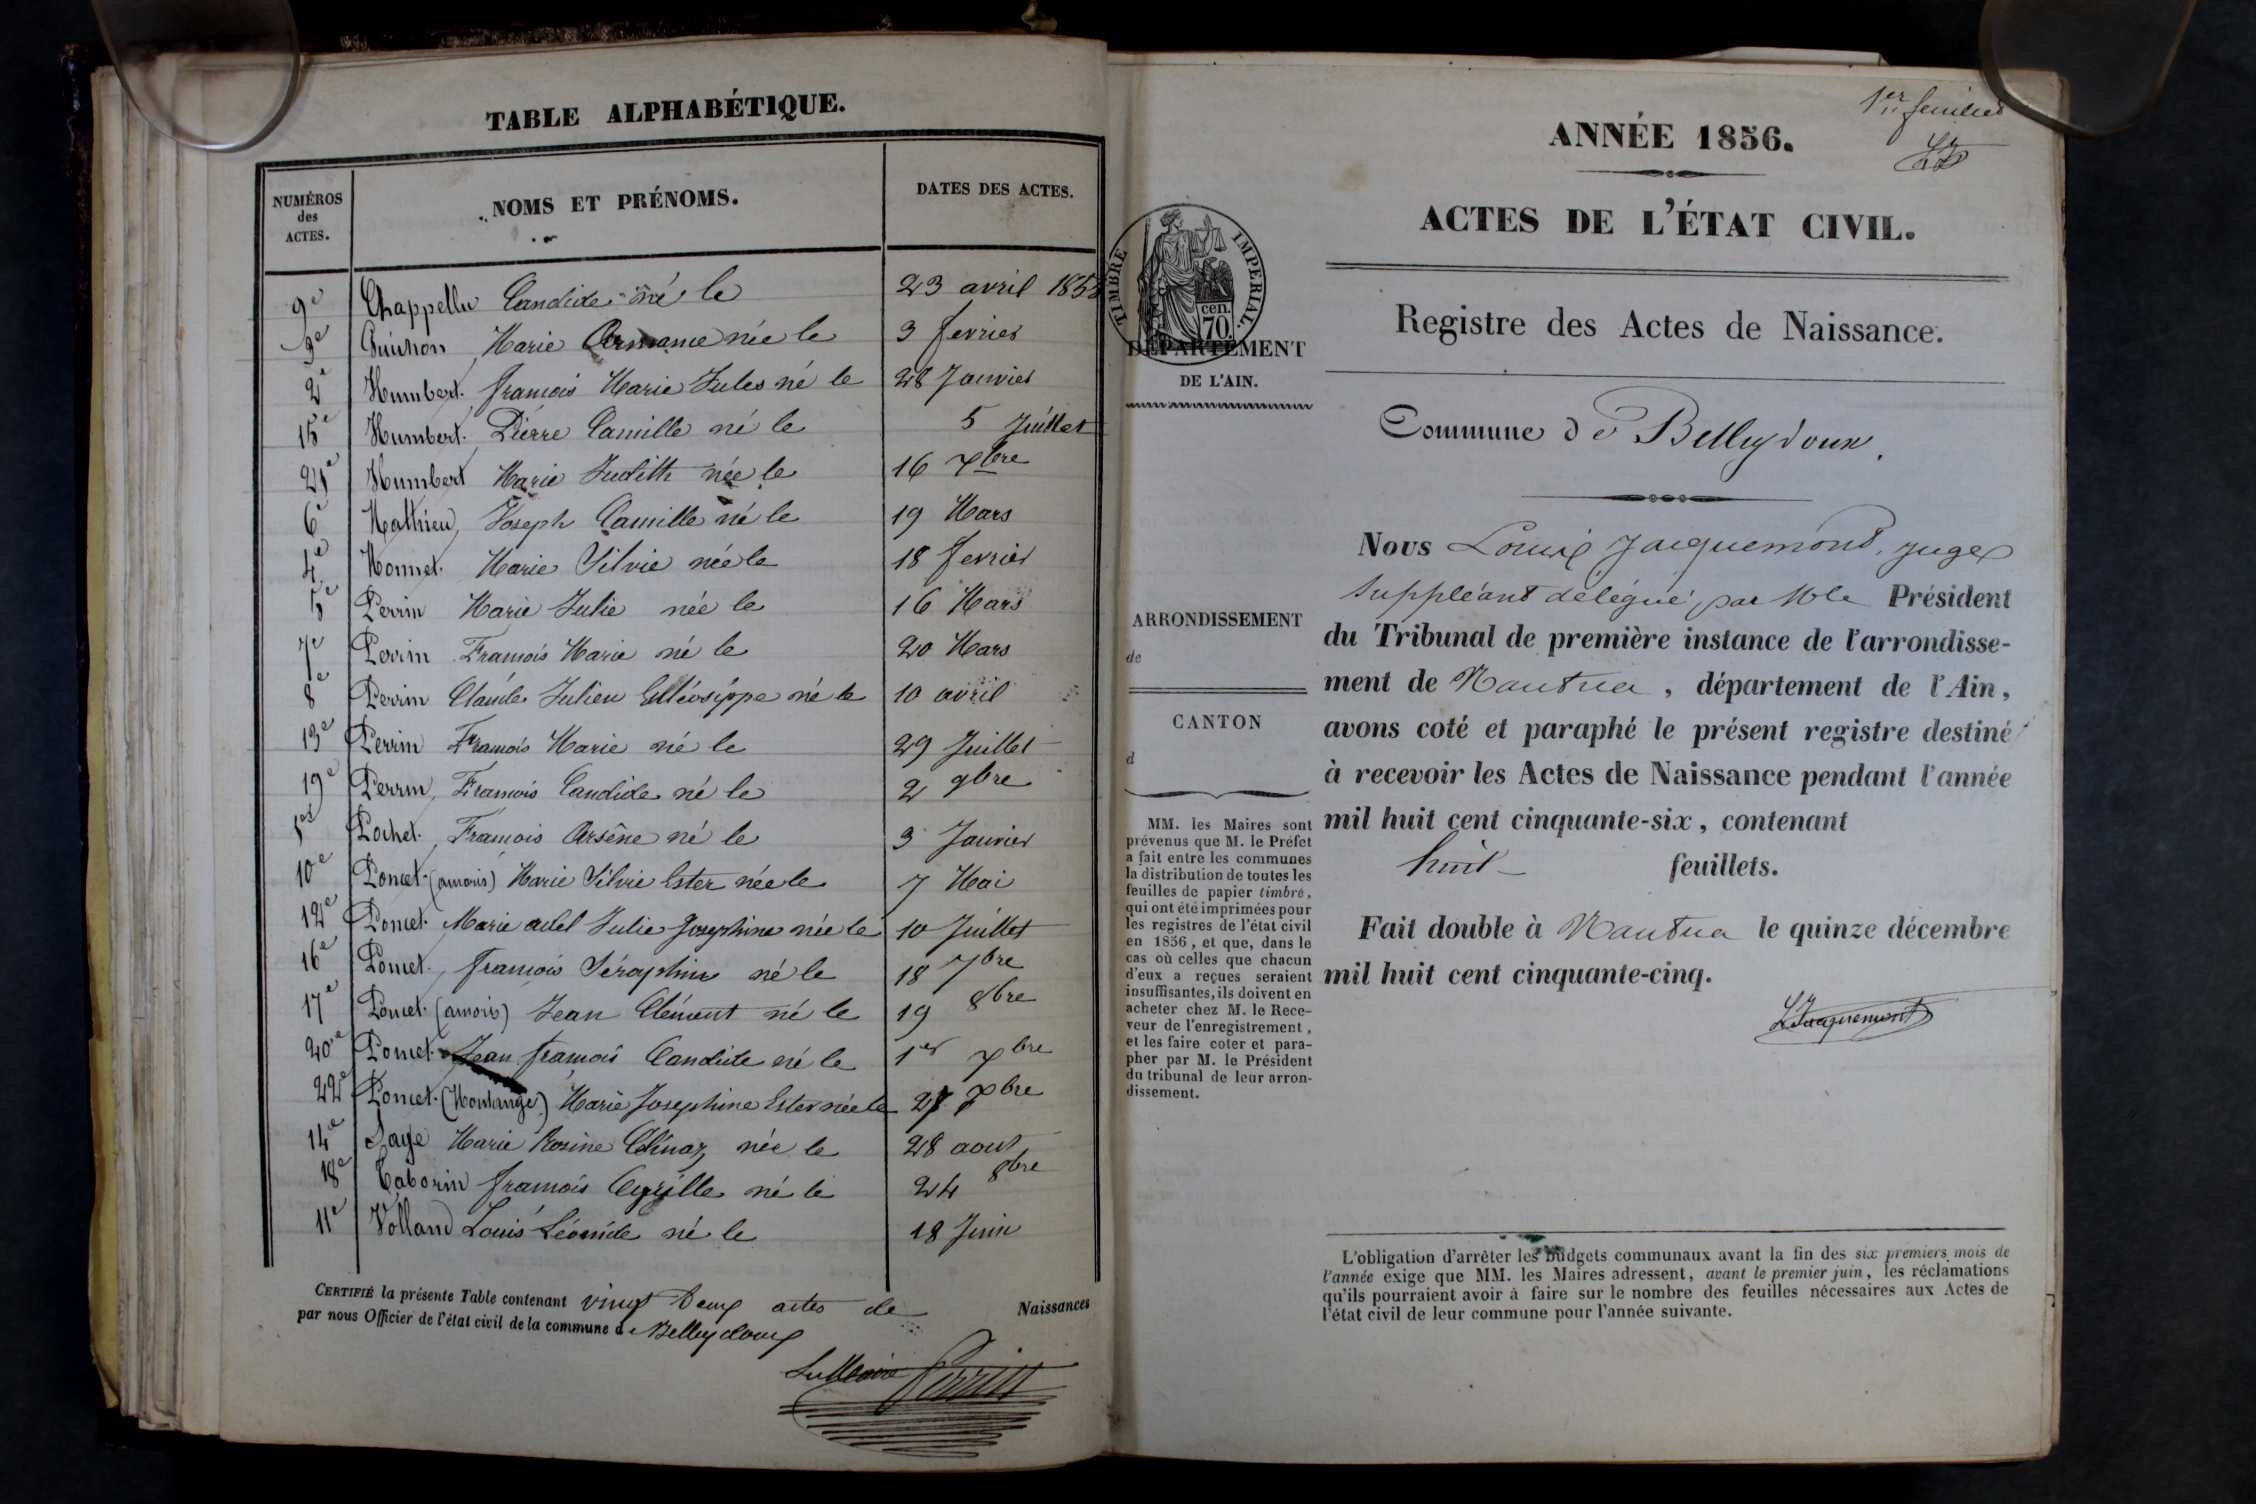 TABLE ALPHABÉTIQUE.
NUMÉROS des ACTES.
NOMS ET PRÉNOMS.
DATES DES ACTES.
9e Chappellu Candide né le 23 avril 185
3e Guichon Marie née le 3 fevrier
2e Humbert. françois Marie Jules né le 28 Janvier
15e Humbert. Pierre Camille né le 5 Juillet
21e Humbert Marie Judith née le 16 xbre
6e Mathieu, Joseph Camille né le 19 Mars
4e Monnet. Marie Silvie née le 18 fevrier
5e Perrin Marie Julie née le 16 Mars
7e Perrin François Marie né le 20 Mars
8e Perrin Claude Julien né le 10 avril
13e Perrin François Marie né le 29 Juillet
19e Perrin, François Candide né le 2 9bre
1er Pochet. François Arsène né le 3 Janvier
10e Poncet. Marie Silvie Ester née le 7 Mai
12e Poncet. Marie adel Julie Josephine née le 10 Juillet
16e Poncet. françois Séraphin né le 18 7bre
17e Poncet. Jean Clément né le 19 8bre
20e Poncet. Jean françois Candide né le 1er xbre
22e Poncet. (Montange) Marie Josephine Ester née le 27 xbre
14e Sage Marie Rosine née le 28 aout
18e Taborin françois Cyrille né le 24 8bre
11e Volland Louis Léonide né le 18 Juin
CERTIFIÉ la présente Table contenant vingt deux actes de Naissances
par nous Officier de l'état civil de la commune de Belleydoux
Le Maire Perrin
1er feuillet
ANNÉE 1856.
ACTES DE L'ÉTAT CIVIL.
TIMBRE IMPÉRIAL.
cen. 70
DÉPARTEMENT
DE L'AIN.
Registre des Actes de Naissance.
Commune de Belleydoux.
Nous Louis Jacquemond, juge
suppléant délégué par Mr le Président
du Tribunal de première instance de l'arrondisse-
ment de Nantua, département de l'Ain,
avons coté et paraphé le présent registre destiné
à recevoir les Actes de Naissance pendant l'année
mil huit cent cinquante-six, contenant
huit feuillets.
Fait double à Nantua le quinze décembre
mil huit cent cinquante-cinq.
LJacquemont
ARRONDISSEMENT
de
CANTON
d
MM. les Maires sont
prévenus que M. le Préfet
a fait entre les communes
la distribution de toutes les
feuilles de papier timbré,
qui ont été imprimées pour
les registres de l'état civil
en 1856, et que, dans le
cas où celles que chacun
d'eux a reçues seraient
insuffisantes, ils doivent en
acheter chez M. le Rece-
veur de l'enregistrement,
et les faire coter et para-
pher par M. le Président
du tribunal de leur arron-
dissement.
L'obligation d'arrêter les budgets communaux avant la fin des six premiers mois de
l'année exige que MM. les Maires adressent, avant le premier juin, les réclamations
qu'ils pourraient avoir à faire sur le nombre des feuilles nécessaires aux Actes de
l'état civil de leur commune pour l'année suivante.